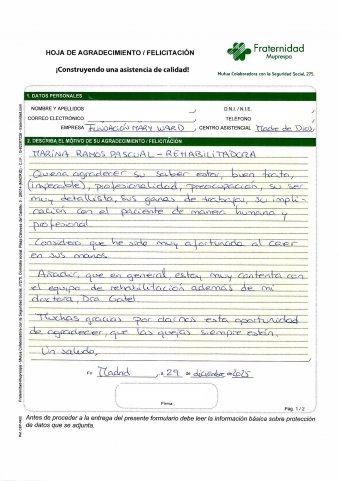 HOJA DE AGRADECIMIENTO / FELICITACIÓN
Fraternidad
Muprespa
¡Construyendo una asistencia de calidad!
Mutua Colaboradora con la Seguridad Social, 275.
1. DATOS PERSONALES
NOMBRE Y APELLIDOS
D.N.I. / N.I.E.
CORREO ELECTRÓNICO
TELÉFONO
EMPRESA FUNDACIÓN MARY WARD
CENTRO ASISTENCIAL Madre de Dios
2. DESCRIBA EL MOTIVO DE SU AGRADECIMIENTO / FELICITACIÓN
MARINA RAMOS PASCUAL - REHABILITADORA
Quería agradecer su saber estar, buen trato,
(impecable), profesionalidad, preocupación, su ser
muy detallista, sus ganas de trabajar, su impli-
cación con el paciente de manera humana y
profesional.
Considero que he sido muy afortunada al caer
en sus manos.
Añadir, que en general, estoy muy contenta con
el equipo de rehabilitación además de mi
doctora, Dra
Muchas gracias por darnos esta oportunidad
de agradecer, que las quejas siempre están.
Un saludo,
En Madrid, a 29 de diciembre de 2025
Firma
Pág. 1 / 2
Antes de proceder a la entrega del presente formulario debe leer la información básica sobre protección
de datos que se adjunta.